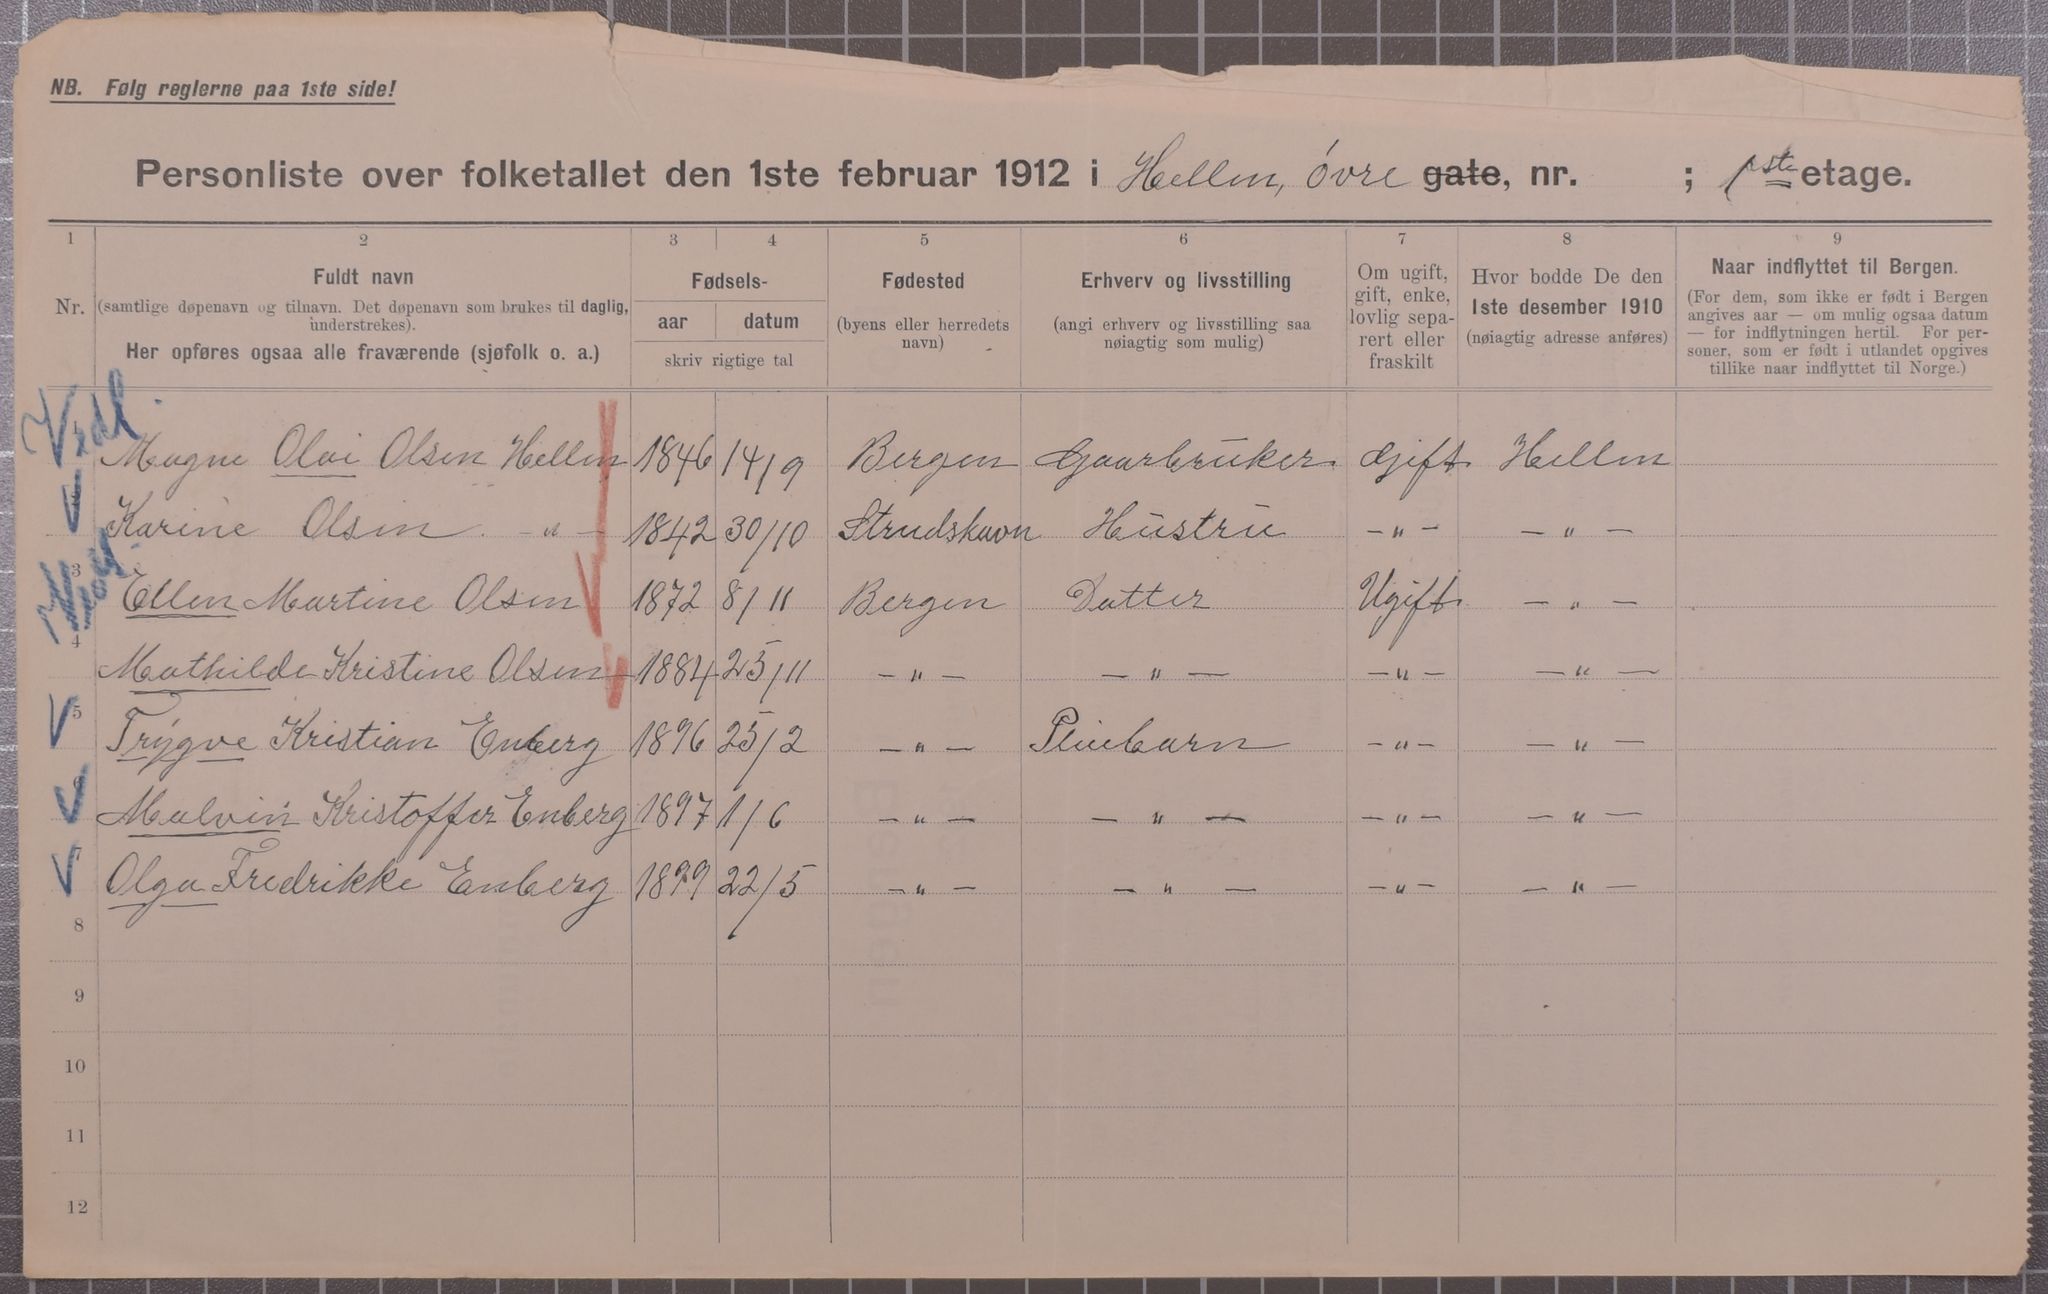 NB. Følg reglerne paa 1ste side!
Personliste over folketallet den 1ste februar 1912 i Hellen, övre gate, nr. ; 1ste etage.
1 2 3 4 5 6 7 8 9
Nr.
Fuldt navn
(samtlige døpenavn og tilnavn. Det døpenavn som brukes til daglig, understrekes).
Her opføres ogsaa alle fraværende (sjøfolk o. a.)
Fødsels-
aar datum
skriv rigtige tal
Fødested
(byens eller herredets navn)
Erhverv og livsstilling
(angi erhverv og livsstilling saa nøiagtig som mulig)
Om ugift, gift, enke, lovlig separert eller fraskilt
Hvor bodde De den 1ste desember 1910
(nøiagtig adresse anføres)
Naar indflyttet til Bergen.
(For dem, som ikke er født i Bergen angives aar — om mulig ogsaa datum — for indflytningen hertil. For personer, som er født i utlandet opgives tillike naar indflyttet til Norge.)
Magne Olai Olsen Hellen 1846 14/9 Bergen Gaarbruker Gift Hellen
Karine Olsen - " - 1842 30/10 Hustru - " - - " -
3 Ellen Martine Olsen 1872 8/11 Bergen Datter Ugift - " -
4 Mathilde Kristine Olsen 1884 25/11 - " - - " - - " - - " -
5 Trygve Kristian Enberg 1896 25/2 - " - Pleiebarn - " - - " -
6 Malvin Kristoffer Enberg 1897 1/6 - " - - " - - " - - " -
7 Olga Fredrikke Enberg 1899 22/5 - " - - " - - " - - " -
8
9
10
11
12